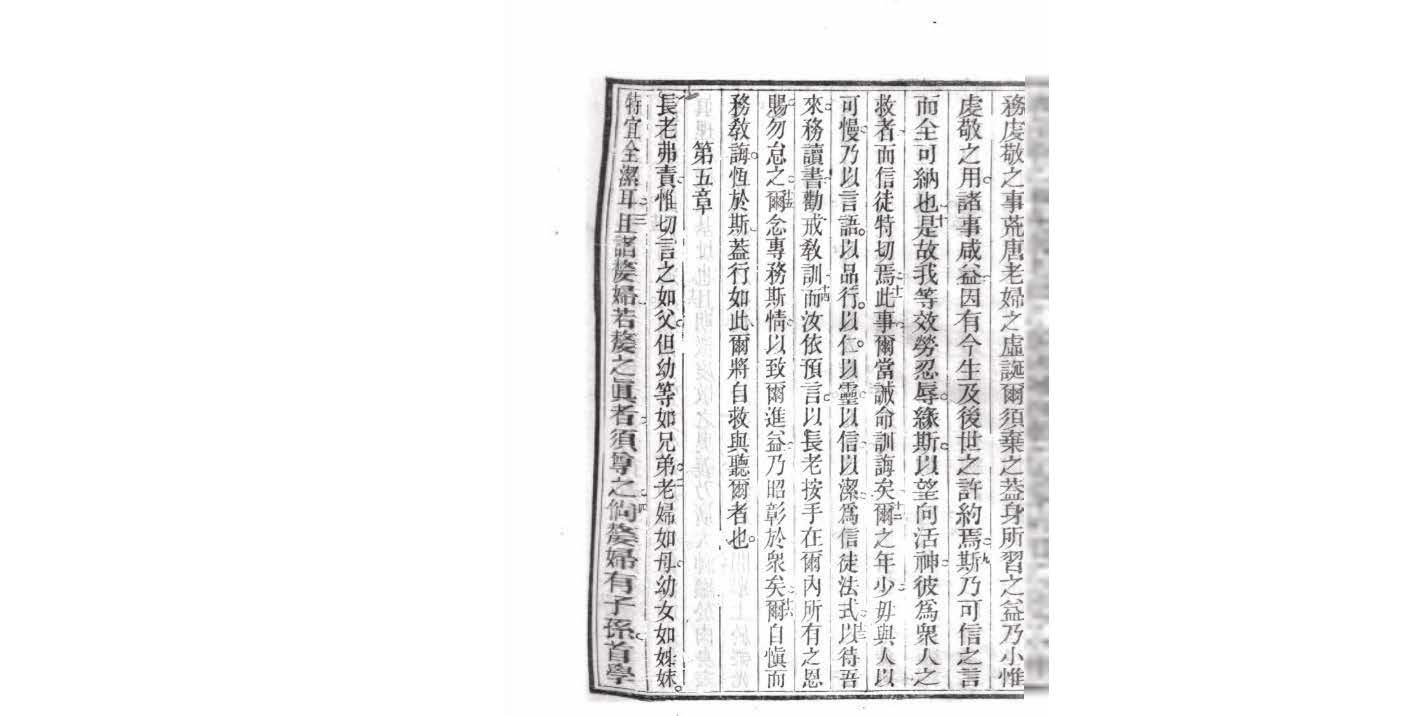 務虔敬之事荒唐老婦之虛誕爾須棄之葢身所習之益乃小惟
虔敬之用諸事咸益因有今生及後世之許約焉九斯乃可信之言
而全可納也十是故我等效勞忍辱緣斯以望向活神彼爲衆人之
救者而信徒特切焉十一此事爾當誡命訓誨矣十二爾之年少毋與人以
可慢乃以言語以品行以仁以靈以信以潔爲信徒法式十三以待吾
來務讀書勸戒敎訓十四而汝依預言以長老按手在爾內所有之恩
賜勿怠之十五爾念專務斯情以致爾進益乃昭彰於衆矣十六爾自愼而
務敎誨恆於斯葢行如此爾將自救與聽爾者也
第五章
長老弗責惟切言之如父但幼等如兄弟二老婦如母幼女如姊妹
特宜全潔耳三且諸嫠婦若嫠之眞者須尊之四倘嫠婦有子孫者學